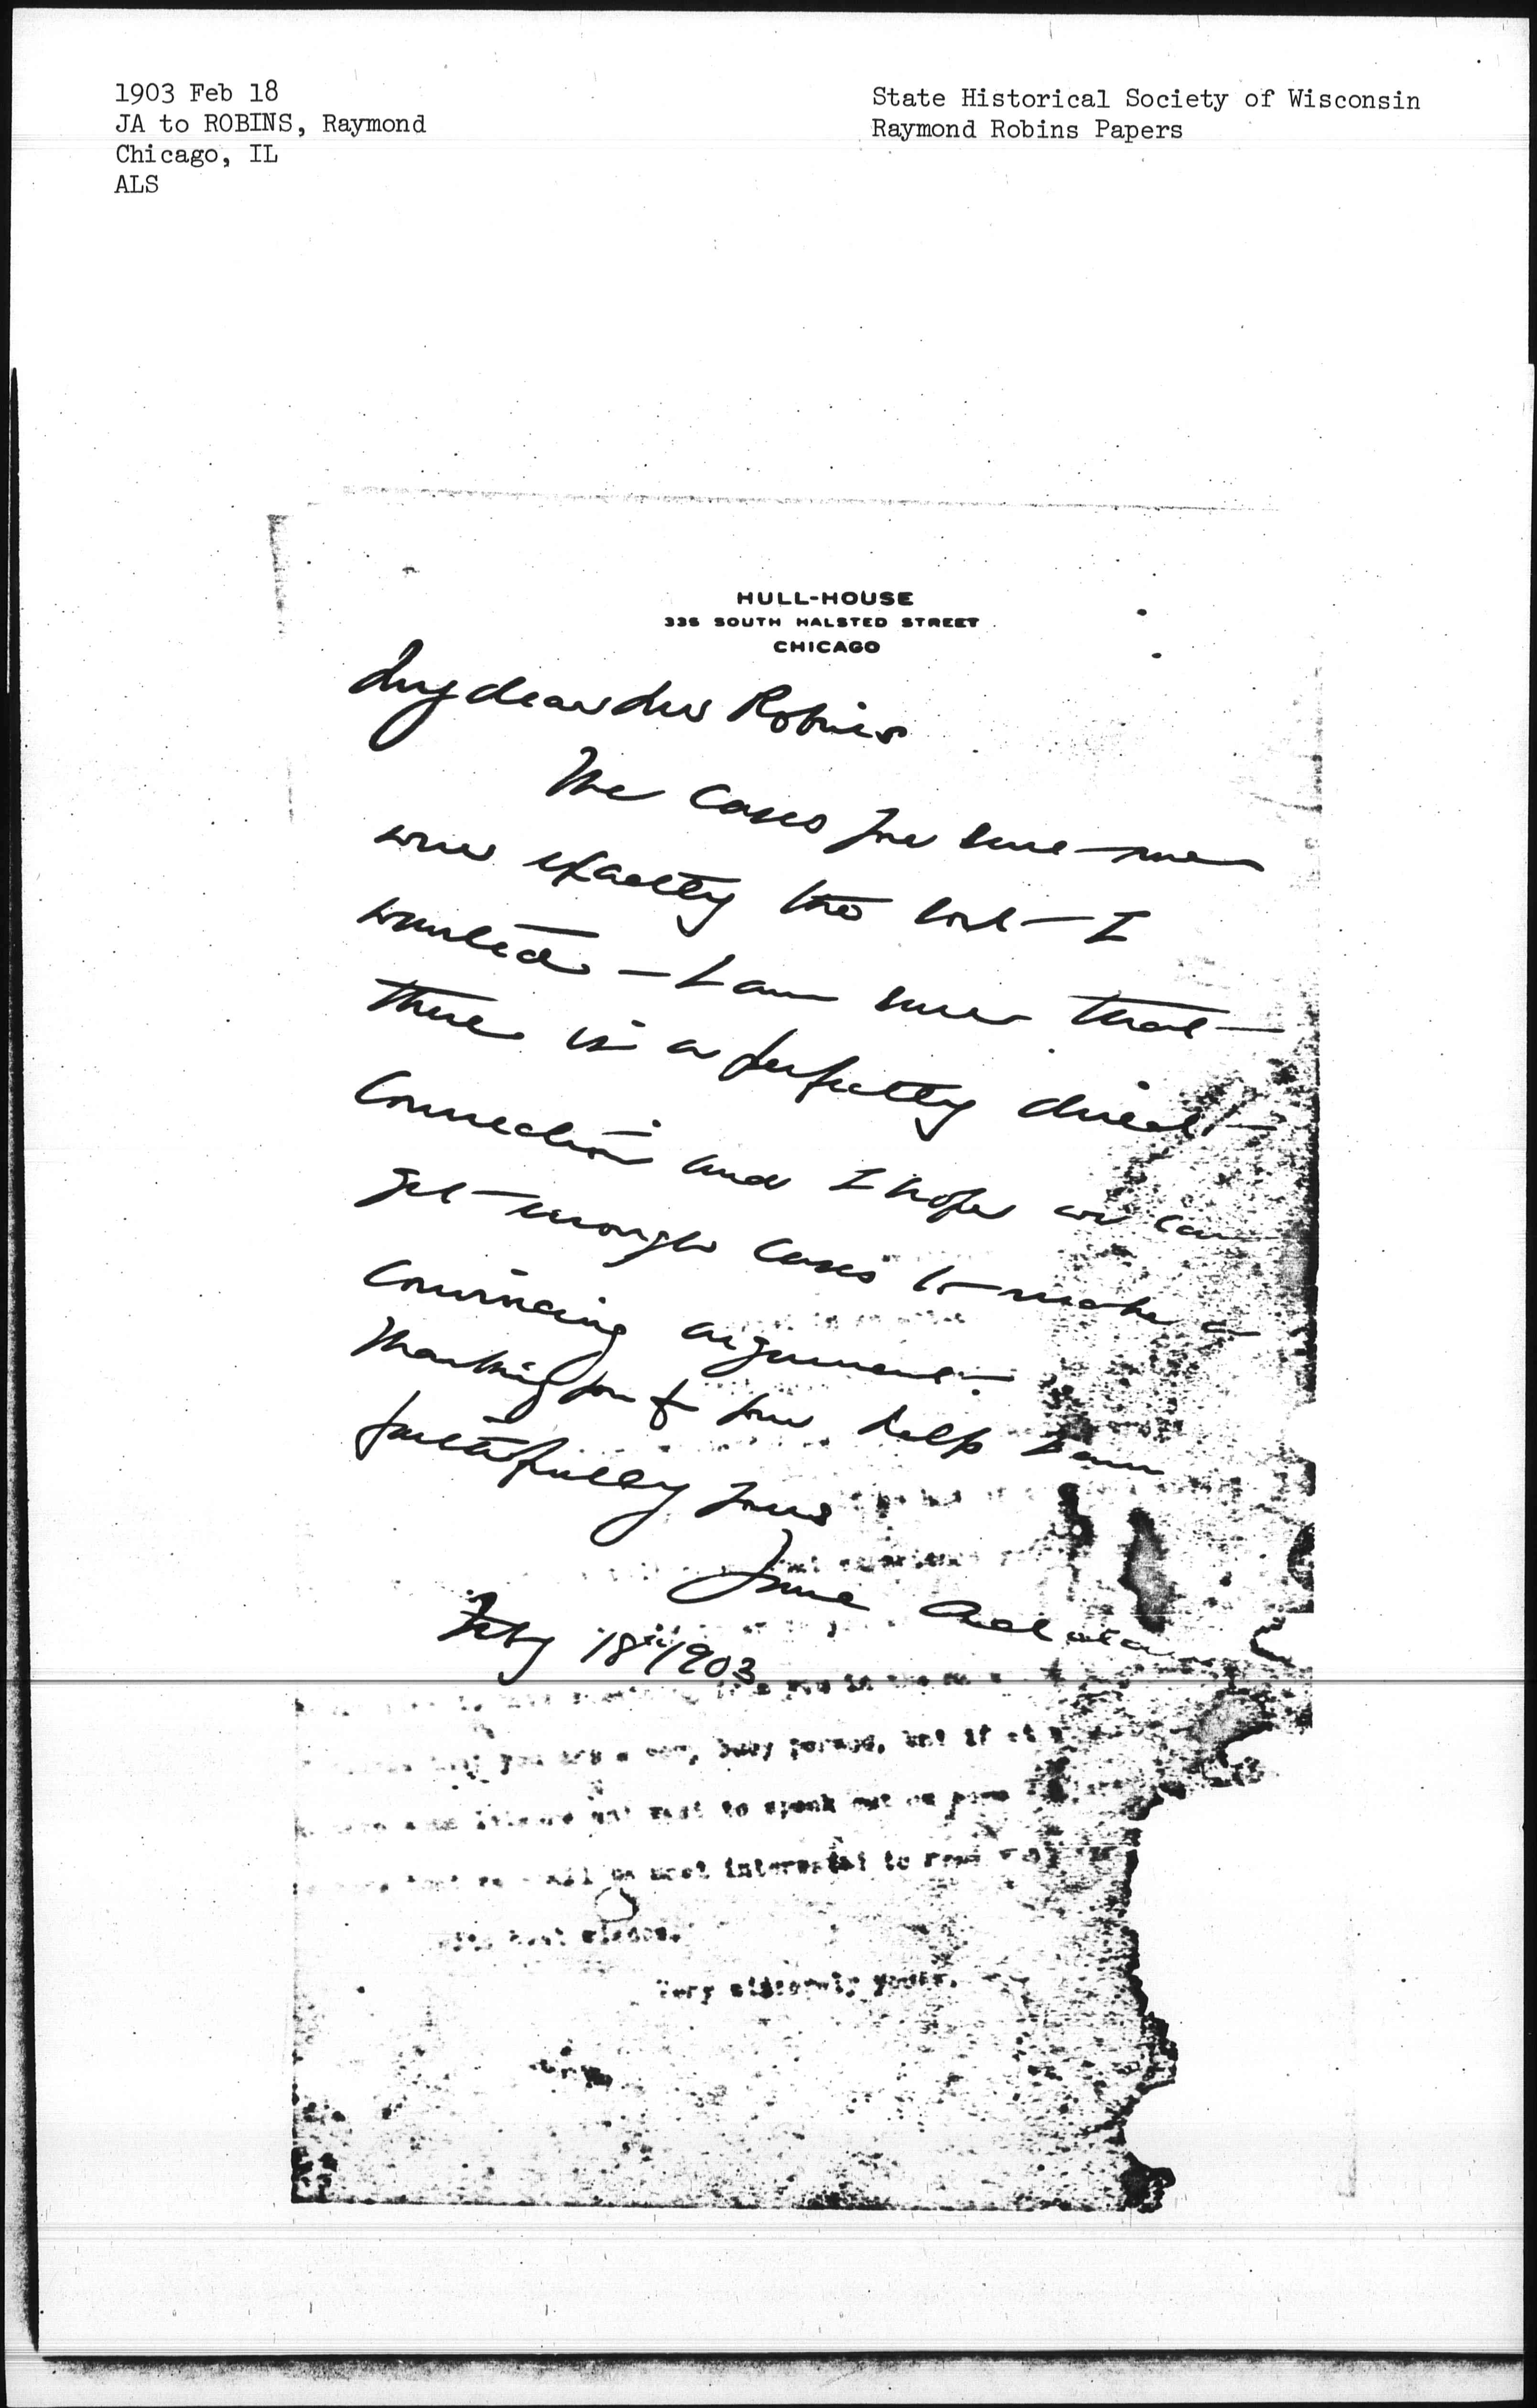 1903 Feb 18
JA to ROBINS, Raymond
Chicago, IL
ALS
State Historical Society of Wisconsin
Raymond Robins Papers
HULL-HOUSE
335 SOUTH HALSTED STREET
CHICAGO
My dear Mr Robins
The cases you sent me
were exactly the sort I
wanted – I am sure that
there is a perfectly direct
connection and I hope we can
get enough cases to make a
convincing argument.
Thanking you for your help I am
faithfully yours
Jane Addams
Feby 18" 1903
you in the
busy person, but if at
to speak out on some
most interested to
best wishes.
Very sincerely yours,